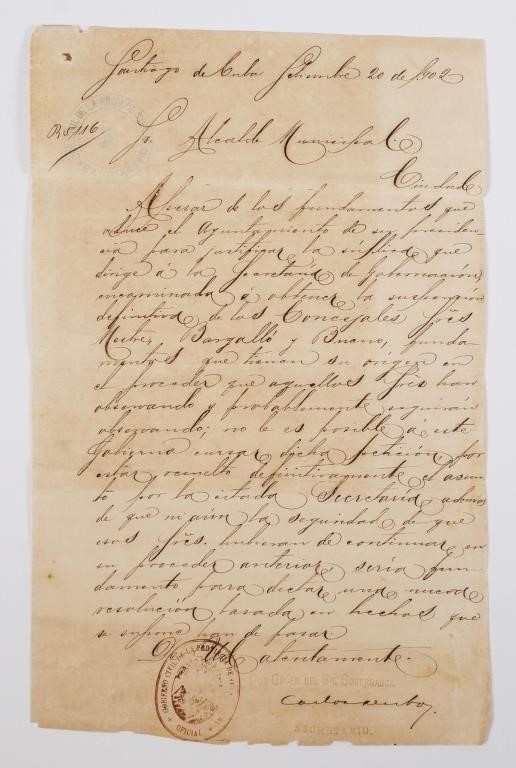 Santiago de Cuba Setiembre 20 de 1902
CIVIL DE LA PROV. DE
R.S. 116
Sr. Alcalde Municipal
Ciudad
Apesar de los fundamentos que
aduce el Ayuntamiento de su presiden-
cia para justificar la súplica que
dirige á la Secretaría de Gobernación,
encaminada á obtener la suspensión
definitiva de los Concejales Sres
Mestre, Bargalló y Bueno, funda-
mentos que tienen su origen en
el proceder que aquellos Sres han
observando y probablemente seguirán
observando; no le es posible á este
Gobierno cursar dicha petición, por
estar resuelto definitivamente el asun-
to por la citada Secretaría, ademas
de que ni aún la seguridad de que
esos Sres. hubieran de continuar en
su proceder anterior, sería fun-
damento para dictar una nueva
resolución basada en hechos que
se supone han de pasar.
De Ud atentamente.
POR ORDEN DEL SR. GOBERNADOR.
GOBIERNO CIVIL DE LA PROV. DE
OFICIAL
SECRETARIO.